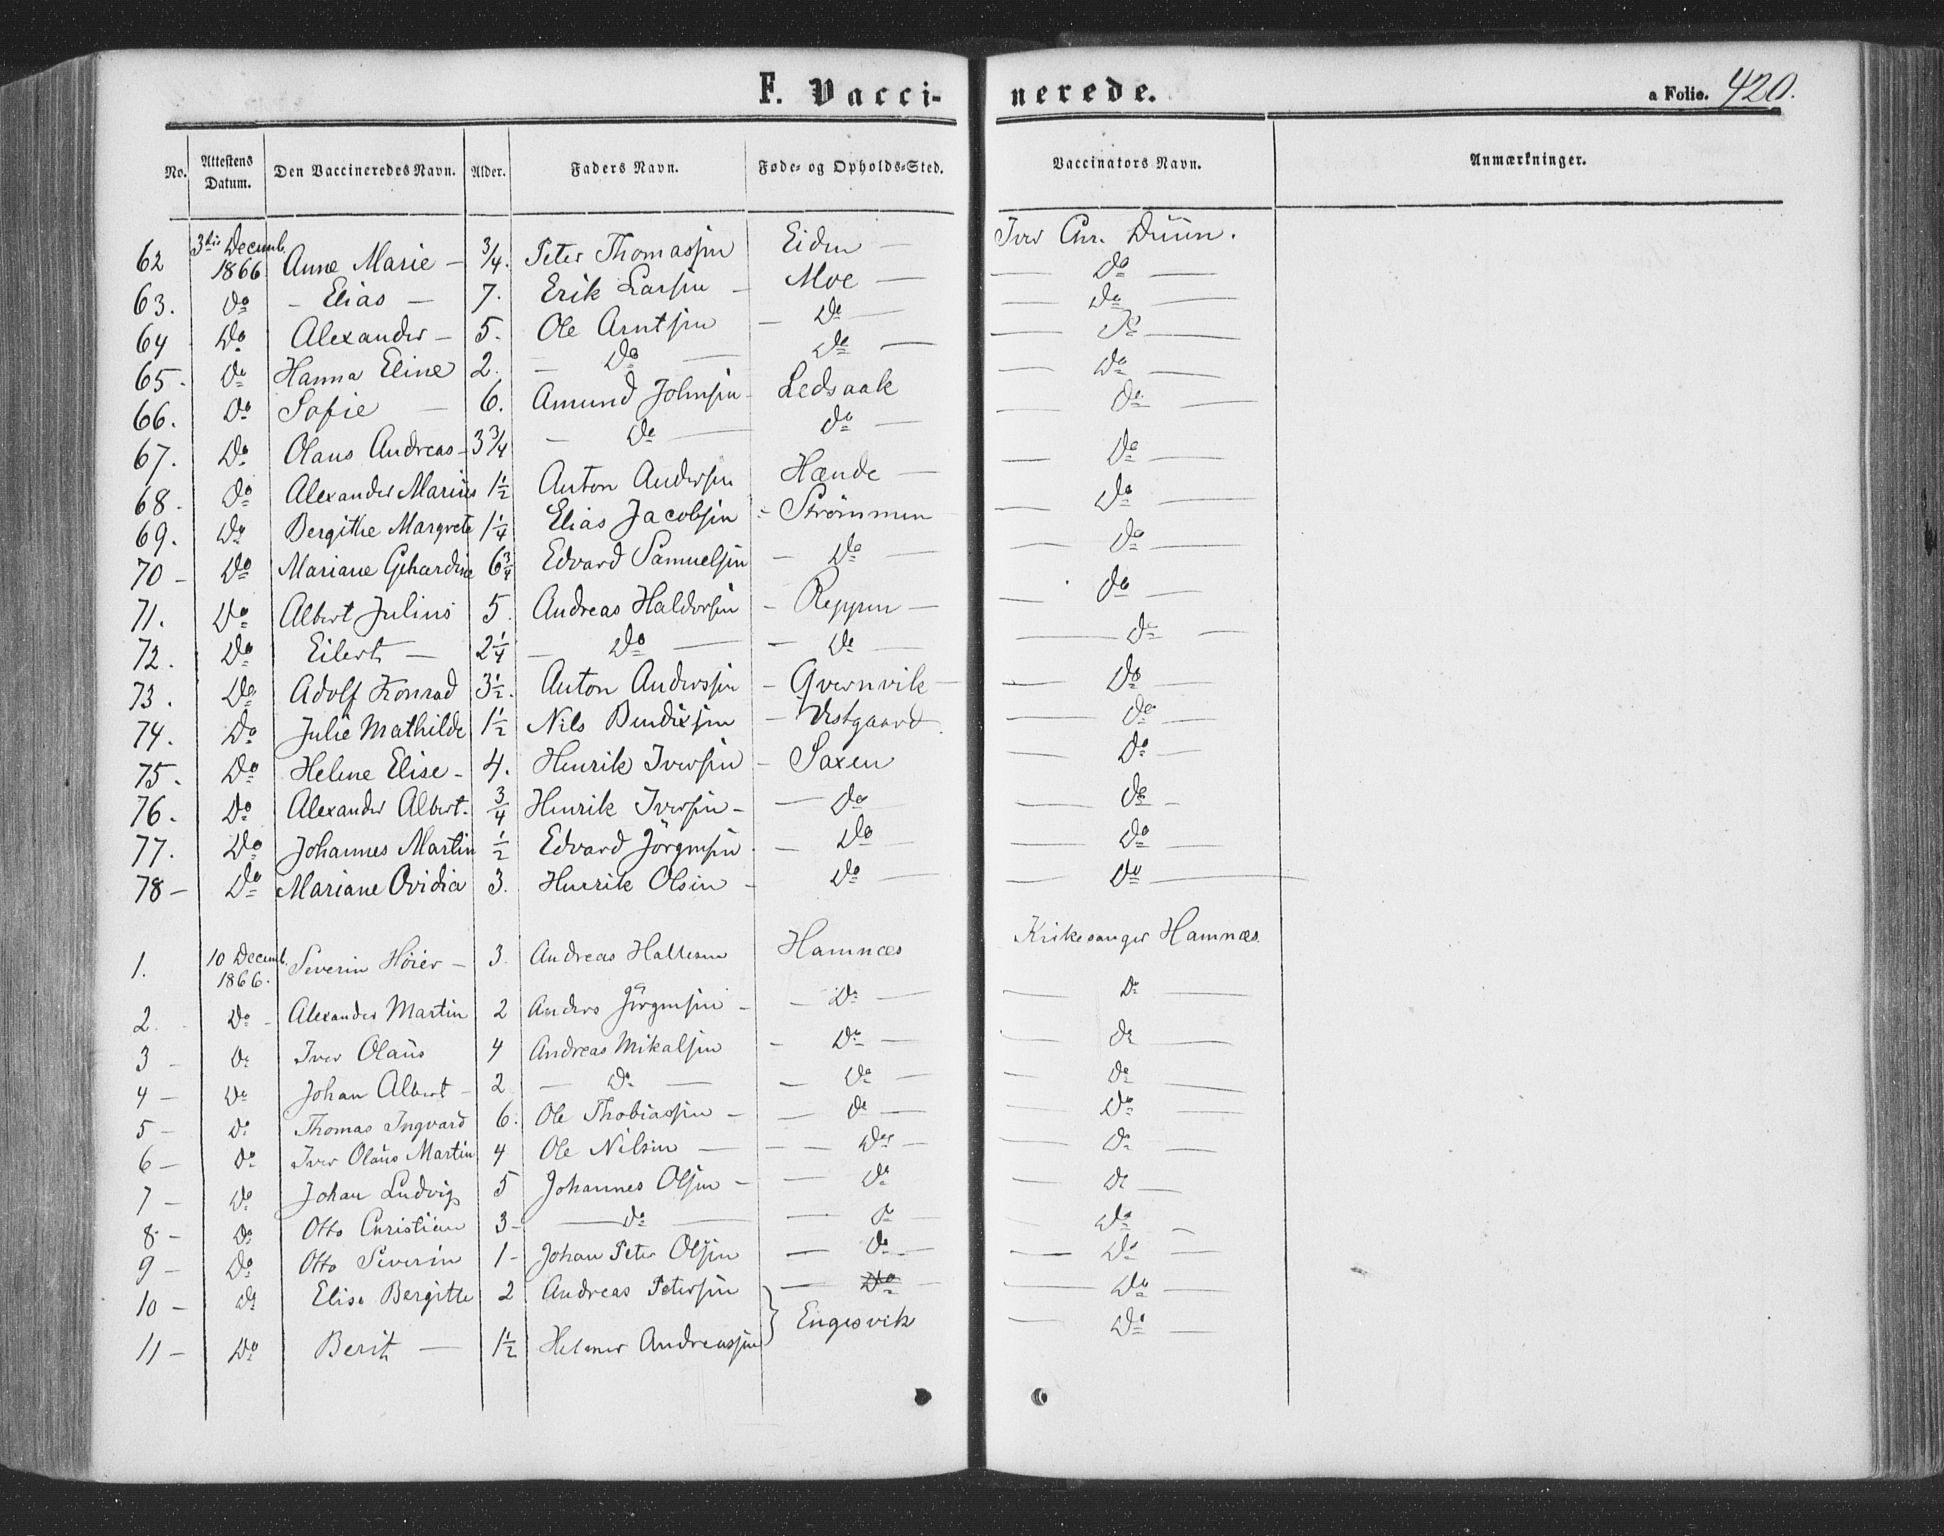 F. Vacci- nerede. a Folio. 420.
No. Attestens Datum. Den Vaccineredes Navn. Alder. Faders Navn. Føde- og Opholds-Sted. Vaccinators Navn. Anmærkninger.
62 3die Decemb. 1866 Anne Marie - 3/4. Peter Thomassen Eiden - Iver Chr. Duun.
63. Do - Elias - 7. Erik Larsen - Moe - Do
64 Do Alexander - 5. Ole Arntsen - Do - Do
65. Do Hanna Eline 2. - Do - Do - Do
66. Do Sofie - 6. Amund Johnsen - Ledsaak Do
67. Do Olaus Andreas - 3 3/4 - Do - Do - Do
68. Do Alexander Marius 1 1/2 Anton Andersen Hænde - Do
69. Do Bergithe Margrete 1 1/4 Elias Jacobsen - Strømmen Do
70 - Do Mariane Gehardine 6 3/4 Edvard Samuelsen - Do - Do
71. Do Albert Julius 5. Andreas Haldorsen - Reppen - Do
72. Do Eilert - 2 1/4 - Do - - Do - Do
73. Do Adolf Konrad 3 1/2. Anton Anderssen - Qvernvik - Do
74. Do Julie Mathilde 1 1/2 Nils Bendixsen - Vestgaard Do
75. Do Helene Elise - 4. Henrik Iversen - Saxen Do
76. Do Alexander Albert. 3/4 Henrik Iversen - - Do Do
77. Do Johannes Martin 1/2 Edvard Jörgensen - Do Do
78 - Do Mariane Ovidia 3. Henrik Olsen - Do - Do
1. 10 Decemb. 1866. Severin Höier - 3. Andreas Hallesen Hamnæs Kirkesanger Hamnæs
2. Do - Alexander Martin 2 Anders Jörgensen - - Do - Do
3 - Do Iver Olaus 4 Andreas Mikalsen - Do - Do
4 - Do Johan Albert - 2 - Do - - Do - Do
5 - Do Thomas Ingvard 6. Ole Thobiassen - - Do - Do
6 - Do Iver Olaus Martin 4 Ole Nilsen - - Do - Do
7 - Do Johan Ludvig 5 Johannes Olsen - - Do Do
8 - Do Otto Christian 3 - - Do - - Do - Do
9 - Do Otto Severin 1 - Johan Peter Olsen - Do - Do
10 - Do Elise Bergitte 2 Andreas Petersen - Do - Do
11 - Do Berit - 1 1/2 Helmer Andreassen } Engesvik Do